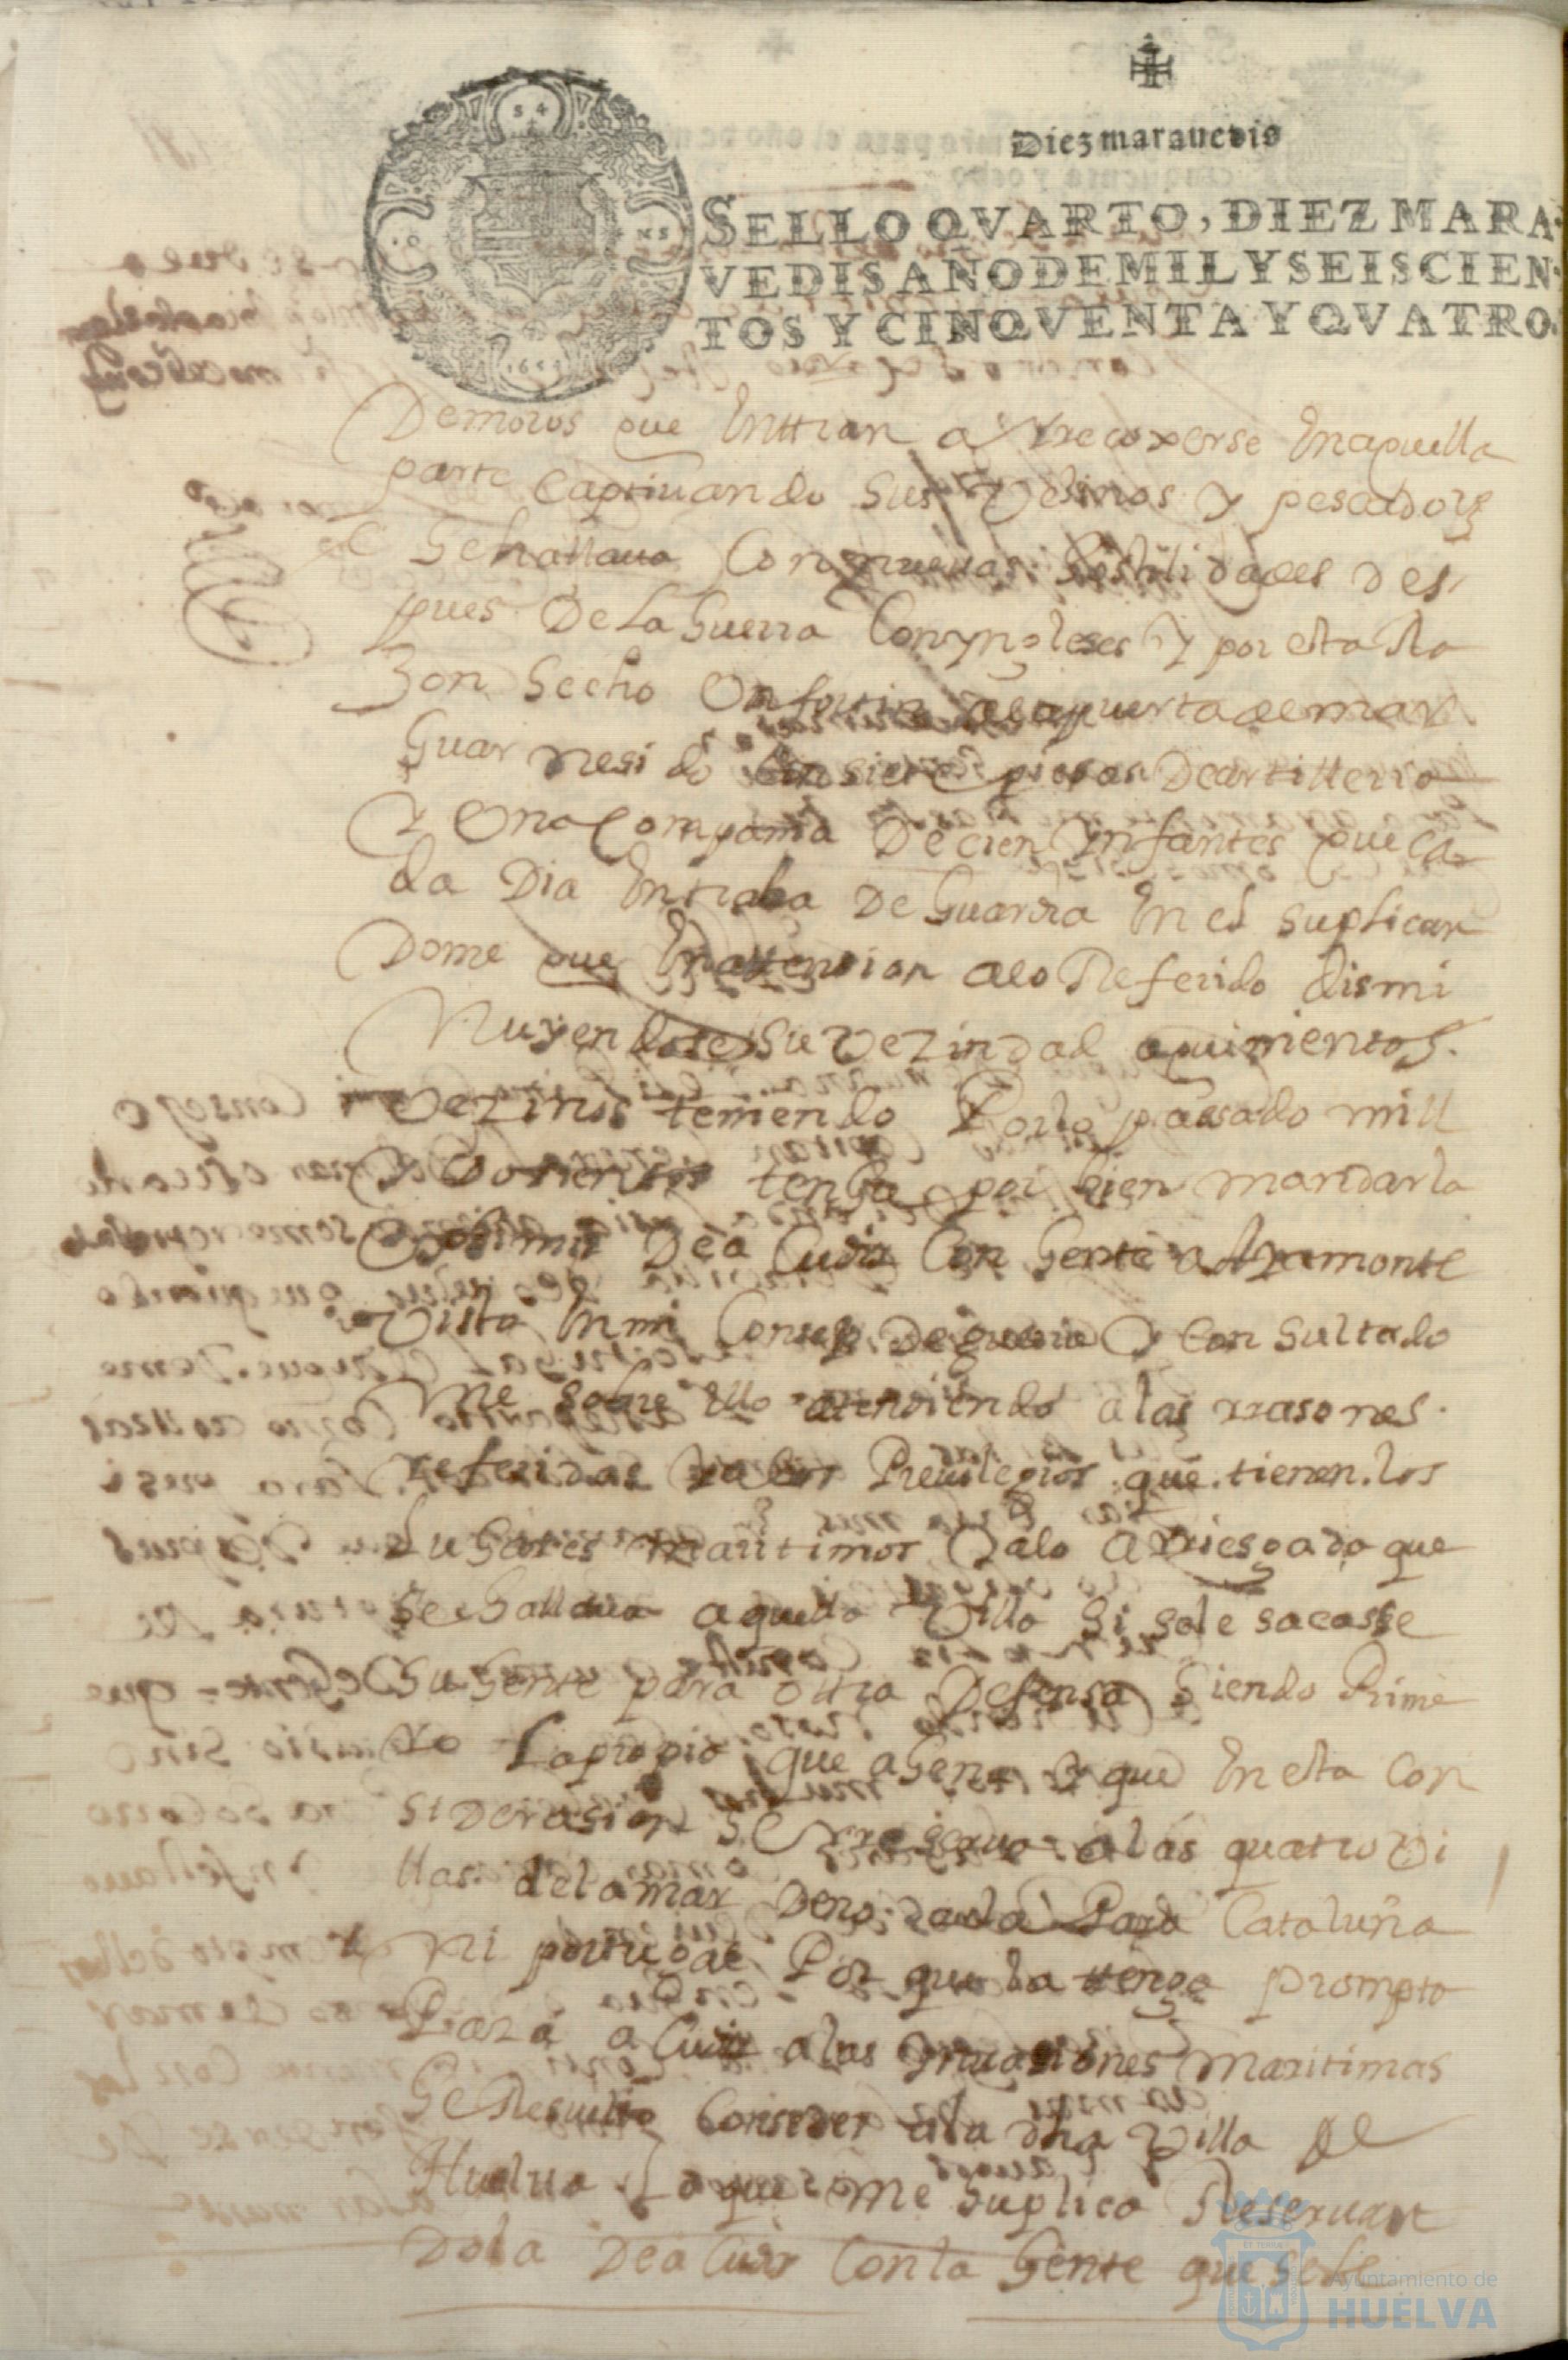 Diez maravedis
SELLO QVARTO, DIEZ MARA-
VEDIS AÑO DE MIL Y SEISCIEN-
TOS Y CINQVENTA Y QVATRO.
De moros que Enttran a rrecoxerse En aquella
parte Captiuando sus Vesinos y pesadores
se hallaua Con nueuas hostilidades des
pues De La Guerra Con yngleses Y por esta Ra
zon hecho Un fortin a la puerta de mar
Guar nesido Con siete piesas De artilleria
Y Una Compama De cien ynfantes que ca
da Dia Entraba De Guardia En el suplican
Dome que En attension a lo Referido dismi
Nuyendose su Vezindad a quinientos
Vezinos teniendo Por lo pasado mill
Y Dosientos tenga por bien mandarla
Eximir De a Cudir Con Gente a Ayamonte
Vista En mi Consejo De guerra Y Con sultado
me sobre ello atendiendo a las rrasones
referidas Y a los Preuilegios que tienen los
Lugares maritimos Y a lo arriesgado que
se hallaua aquella Villa si se le sacasse
su Gente para ottra Defensa siendo Prime
ro La propia que agena Y que En esta con
siderasion se rreserua a las quatro Vi
llas de la mar De no darla Para Cataluña
ni portugal Por que la tenga prompta
Para a Cudir a las ynuasiones maritimas
He Resuelto Conseder a la dha Villa de
Huelua Lo que me suplica Reseruan
dola De a Cudir Con la Gente que se le
Ayuntamiento de
HUELVA